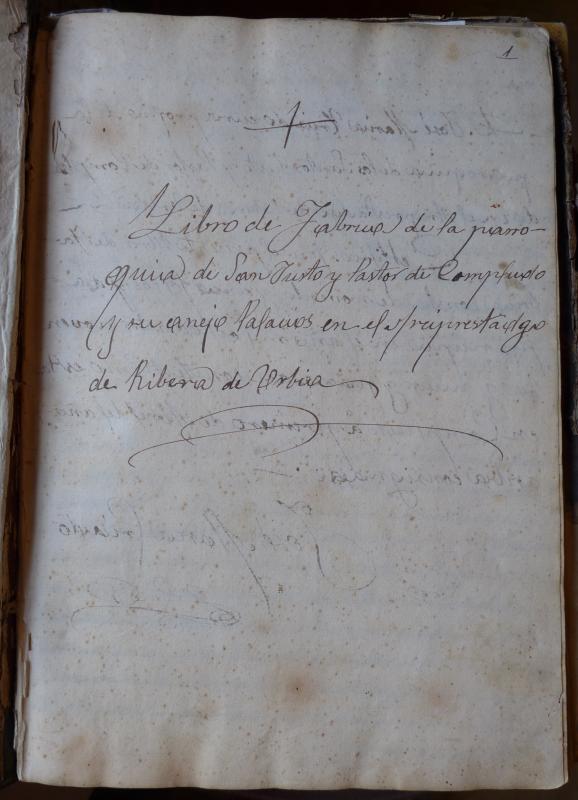 1
Libro de Fabrica de la parro-
quia de San Justo y Pastor de Compludo
y su anejo Palacios en el Arciprestazgo
de Ribera de Urbia